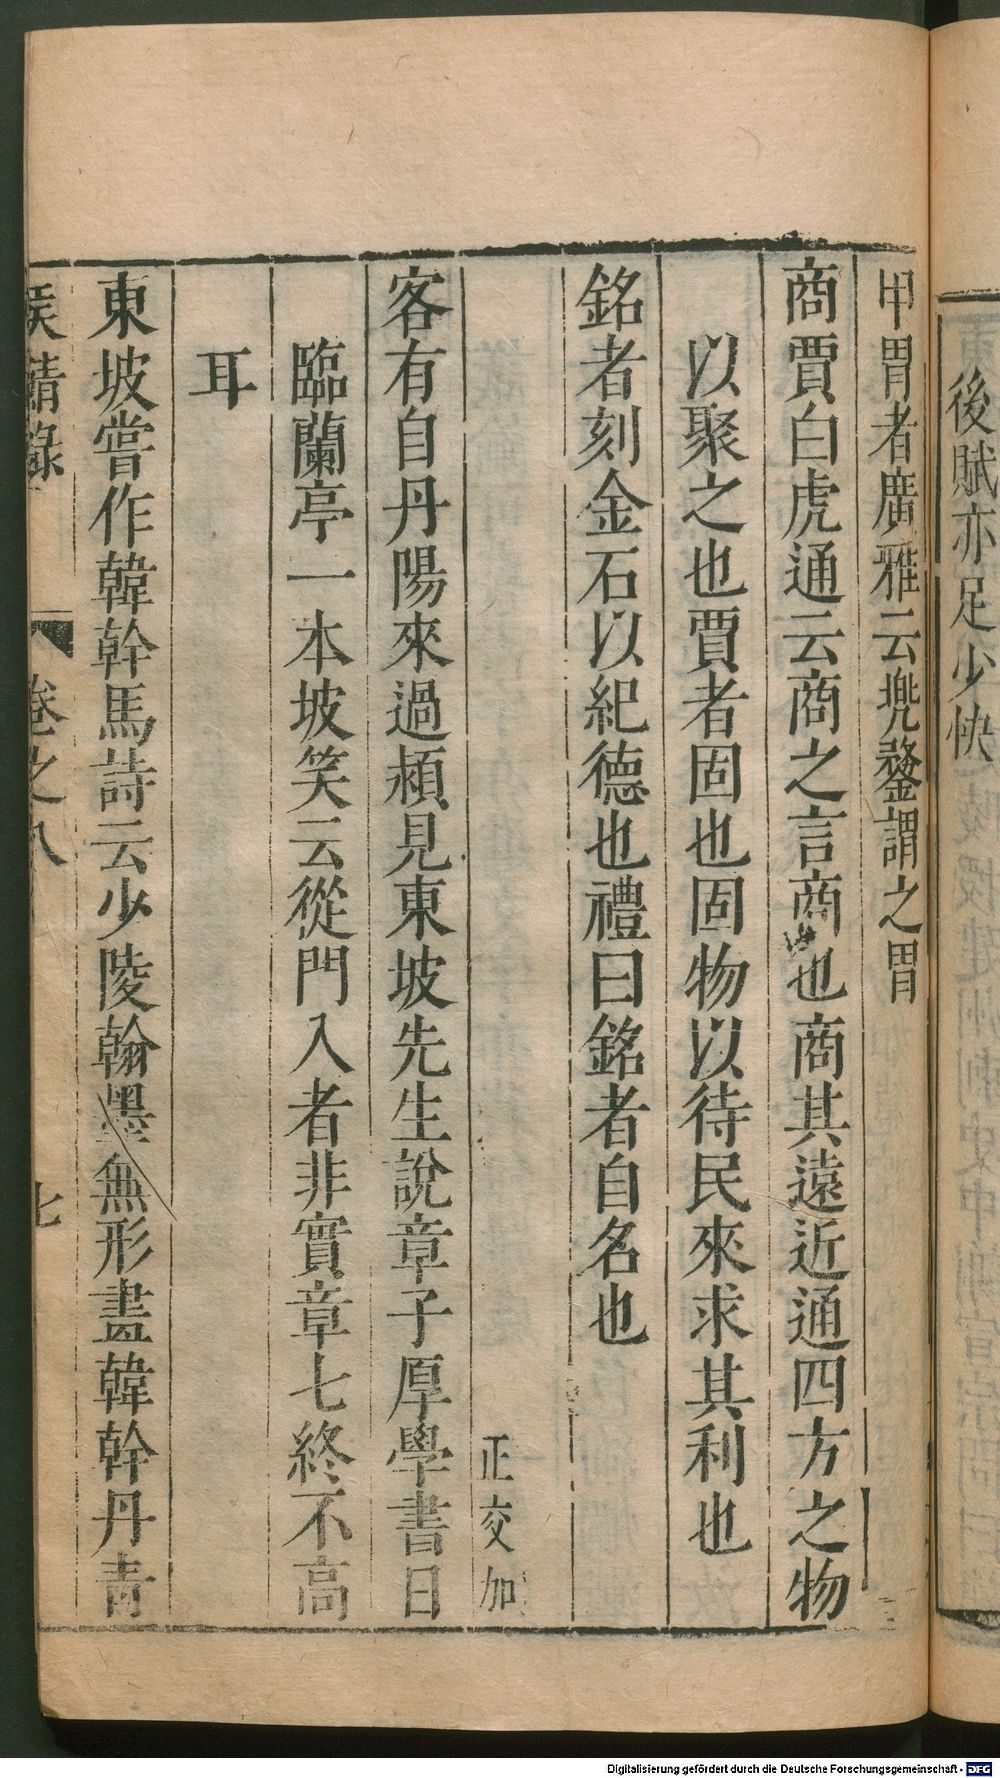 後賦亦足少快
甲胄者廣雅云兠鍪謂之胄
商賈白虎通云商之言商也商其遠近通四方之物
以聚之也賈者固也固物以待民來求其利也
銘者刻金石以紀德也禮曰銘者自名也
正交加
客有自丹陽來過潁見東坡先生說章子厚學書日
臨蘭亭一本坡笑云從門入者非寶章七終不高
耳
東坡嘗作韓幹馬詩云少陵翰墨無形畫韓幹丹青
侯鯖錄 卷之八 七
Digitalisierung gefördert durch die Deutsche Forschungsgemeinschaft - DFG